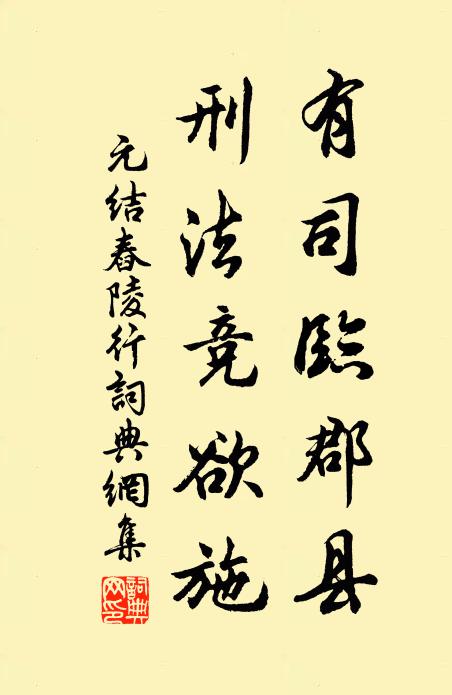 有司臨郡县
刑法竞欲施
元结舂陵行詞典網集
詞典
网印